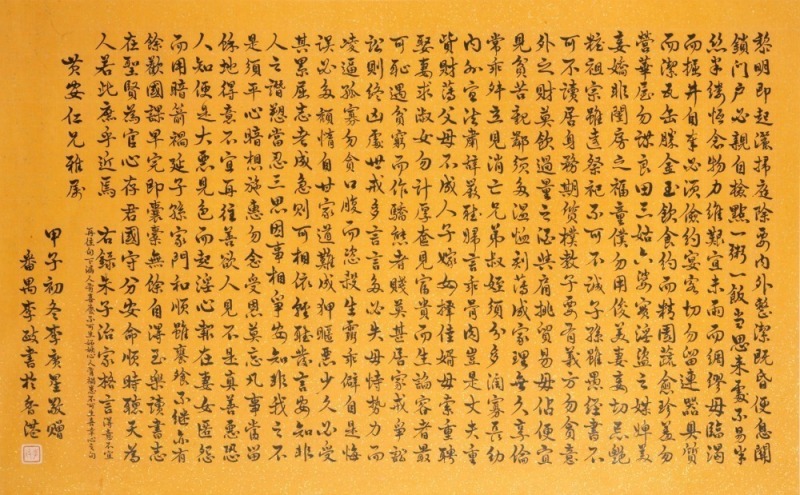 黎明即起灑掃庭除要内外整潔既昏便息關
鎖門戶必親自檢點一粥一飯當思来處不易半
絲半縷恒念物力維艱宜未雨而綢繆毋臨渴
而掘井自奉必須儉約宴客切勿留連器具質
而潔瓦缶勝金玉飲食約而精園蔬愈珍羞勿
營華屋勿謀良田三姑六婆實淫盜之媒婢美
妾嬌非閨房之福童僕勿用俊美妻妾切忌艷
粧祖宗雖遠祭祀不可不誠子孫雖愚經書不
可不讀居身務期質樸教子要有義方勿貪意
外之財莫飲過量之酒與肩挑貿易毋佔便宜
見貧苦親鄰須多温恤刻薄成家理無久享倫
常乖舛立見消亡兄弟叔姪須分多潤寡長幼
内外宜法肅辭嚴聽婦言乖骨肉豈是丈夫重
貲財薄父母不成人子嫁女擇佳婿毋索重聘
娶媳求淑女勿計厚奩見富貴而生諂容者最
可恥遇貧窮而作驕態者賤莫甚居家戒爭訟
訟則終凶處世戒多言言多必失毋恃勢力而
凌逼孤寡勿貪口腹而恣殺生靈乖僻自是悔
誤必多頹惰自甘家道難成狎暱惡少久必受
其累屈志老成急則可相依輕聽發言安知非
人之譖愬當忍三思因事相爭安知非我之不
是須平心暗想施惠勿念受恩莫忘凡事當留
餘地得意不宜再往善欲人見不是真善惡恐
人知便是大惡見色而起淫心報在妻女匿怨
而用暗箭禍延子孫家門和順雖饔飧不繼亦有
餘歡國課早完即囊橐無餘自得至樂讀書志
在聖賢為官心存君國守分安命順時聽天為
人若此庶乎近焉 右録朱子治家格言 得意不宜
再往句下漏人有喜慶不可生妒忌心人有禍患不可生喜幸心之句
黄安仁兄雅屬
甲子初冬李廣星敬贈
番禺李政書於香港